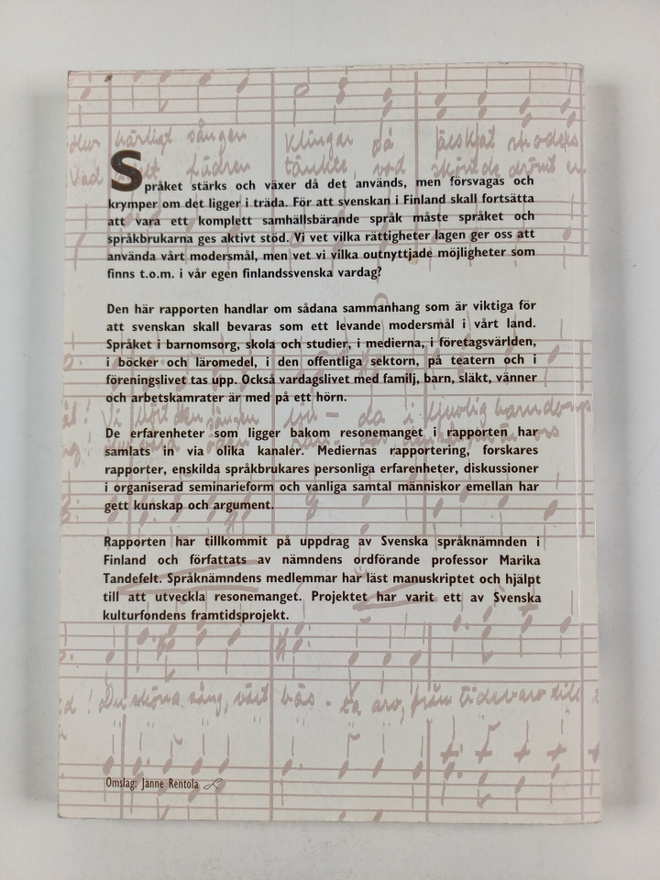 Hur härligt sången klingar på älskat moders
Språket stärks och växer då det används, men försvagas och
krymper om det ligger i träda. För att svenskan i Finland skall fortsätta
att vara ett komplett samhällsbärande språk måste språket och
språkbrukarna ges aktivt stöd. Vi vet vilka rättigheter lagen ger oss att
använda vårt modersmål, men vet vi vilka outnyttjade möjligheter som
finns t.o.m. i vår egen finlandssvenska vardag?
Den här rapporten handlar om sådana sammanhang som är viktiga för
att svenskan skall bevaras som ett levande modersmål i vårt land.
Språket i barnomsorg, skola och studier, i medierna, i företagsvärlden,
i böcker och läromedel, i den offentliga sektorn, på teatern och i
föreningslivet tas upp. Också vardagslivet med familj, barn, släkt, vänner
och arbetskamrater är med på ett hörn.
De erfarenheter som ligger bakom resonemanget i rapporten har
samlats in via olika kanaler. Mediernas rapportering, forskares
rapporter, enskilda språkbrukares personliga erfarenheter, diskussioner
i organiserad seminarieform och vanliga samtal människor emellan har
gett kunskap och argument.
Rapporten har tillkommit på uppdrag av Svenska språknämnden i
Finland och författats av nämndens ordförande professor Marika
Tandefelt. Språknämndens medlemmar har läst manuskriptet och hjälpt
till att utveckla resonemanget. Projektet har varit ett av Svenska
kulturfondens framtidsprojekt.
Du sköna sång, vårt bäs - ta arv, från tidevarv till
Omslag: Janne Rentola